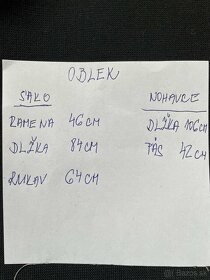 OBLEK
SAKO
RAMENA 46CM
DLŽKA 84CM
RUKAV 64CM
NOHAVCE
DLŽKA 106CM
PÁS 42CM